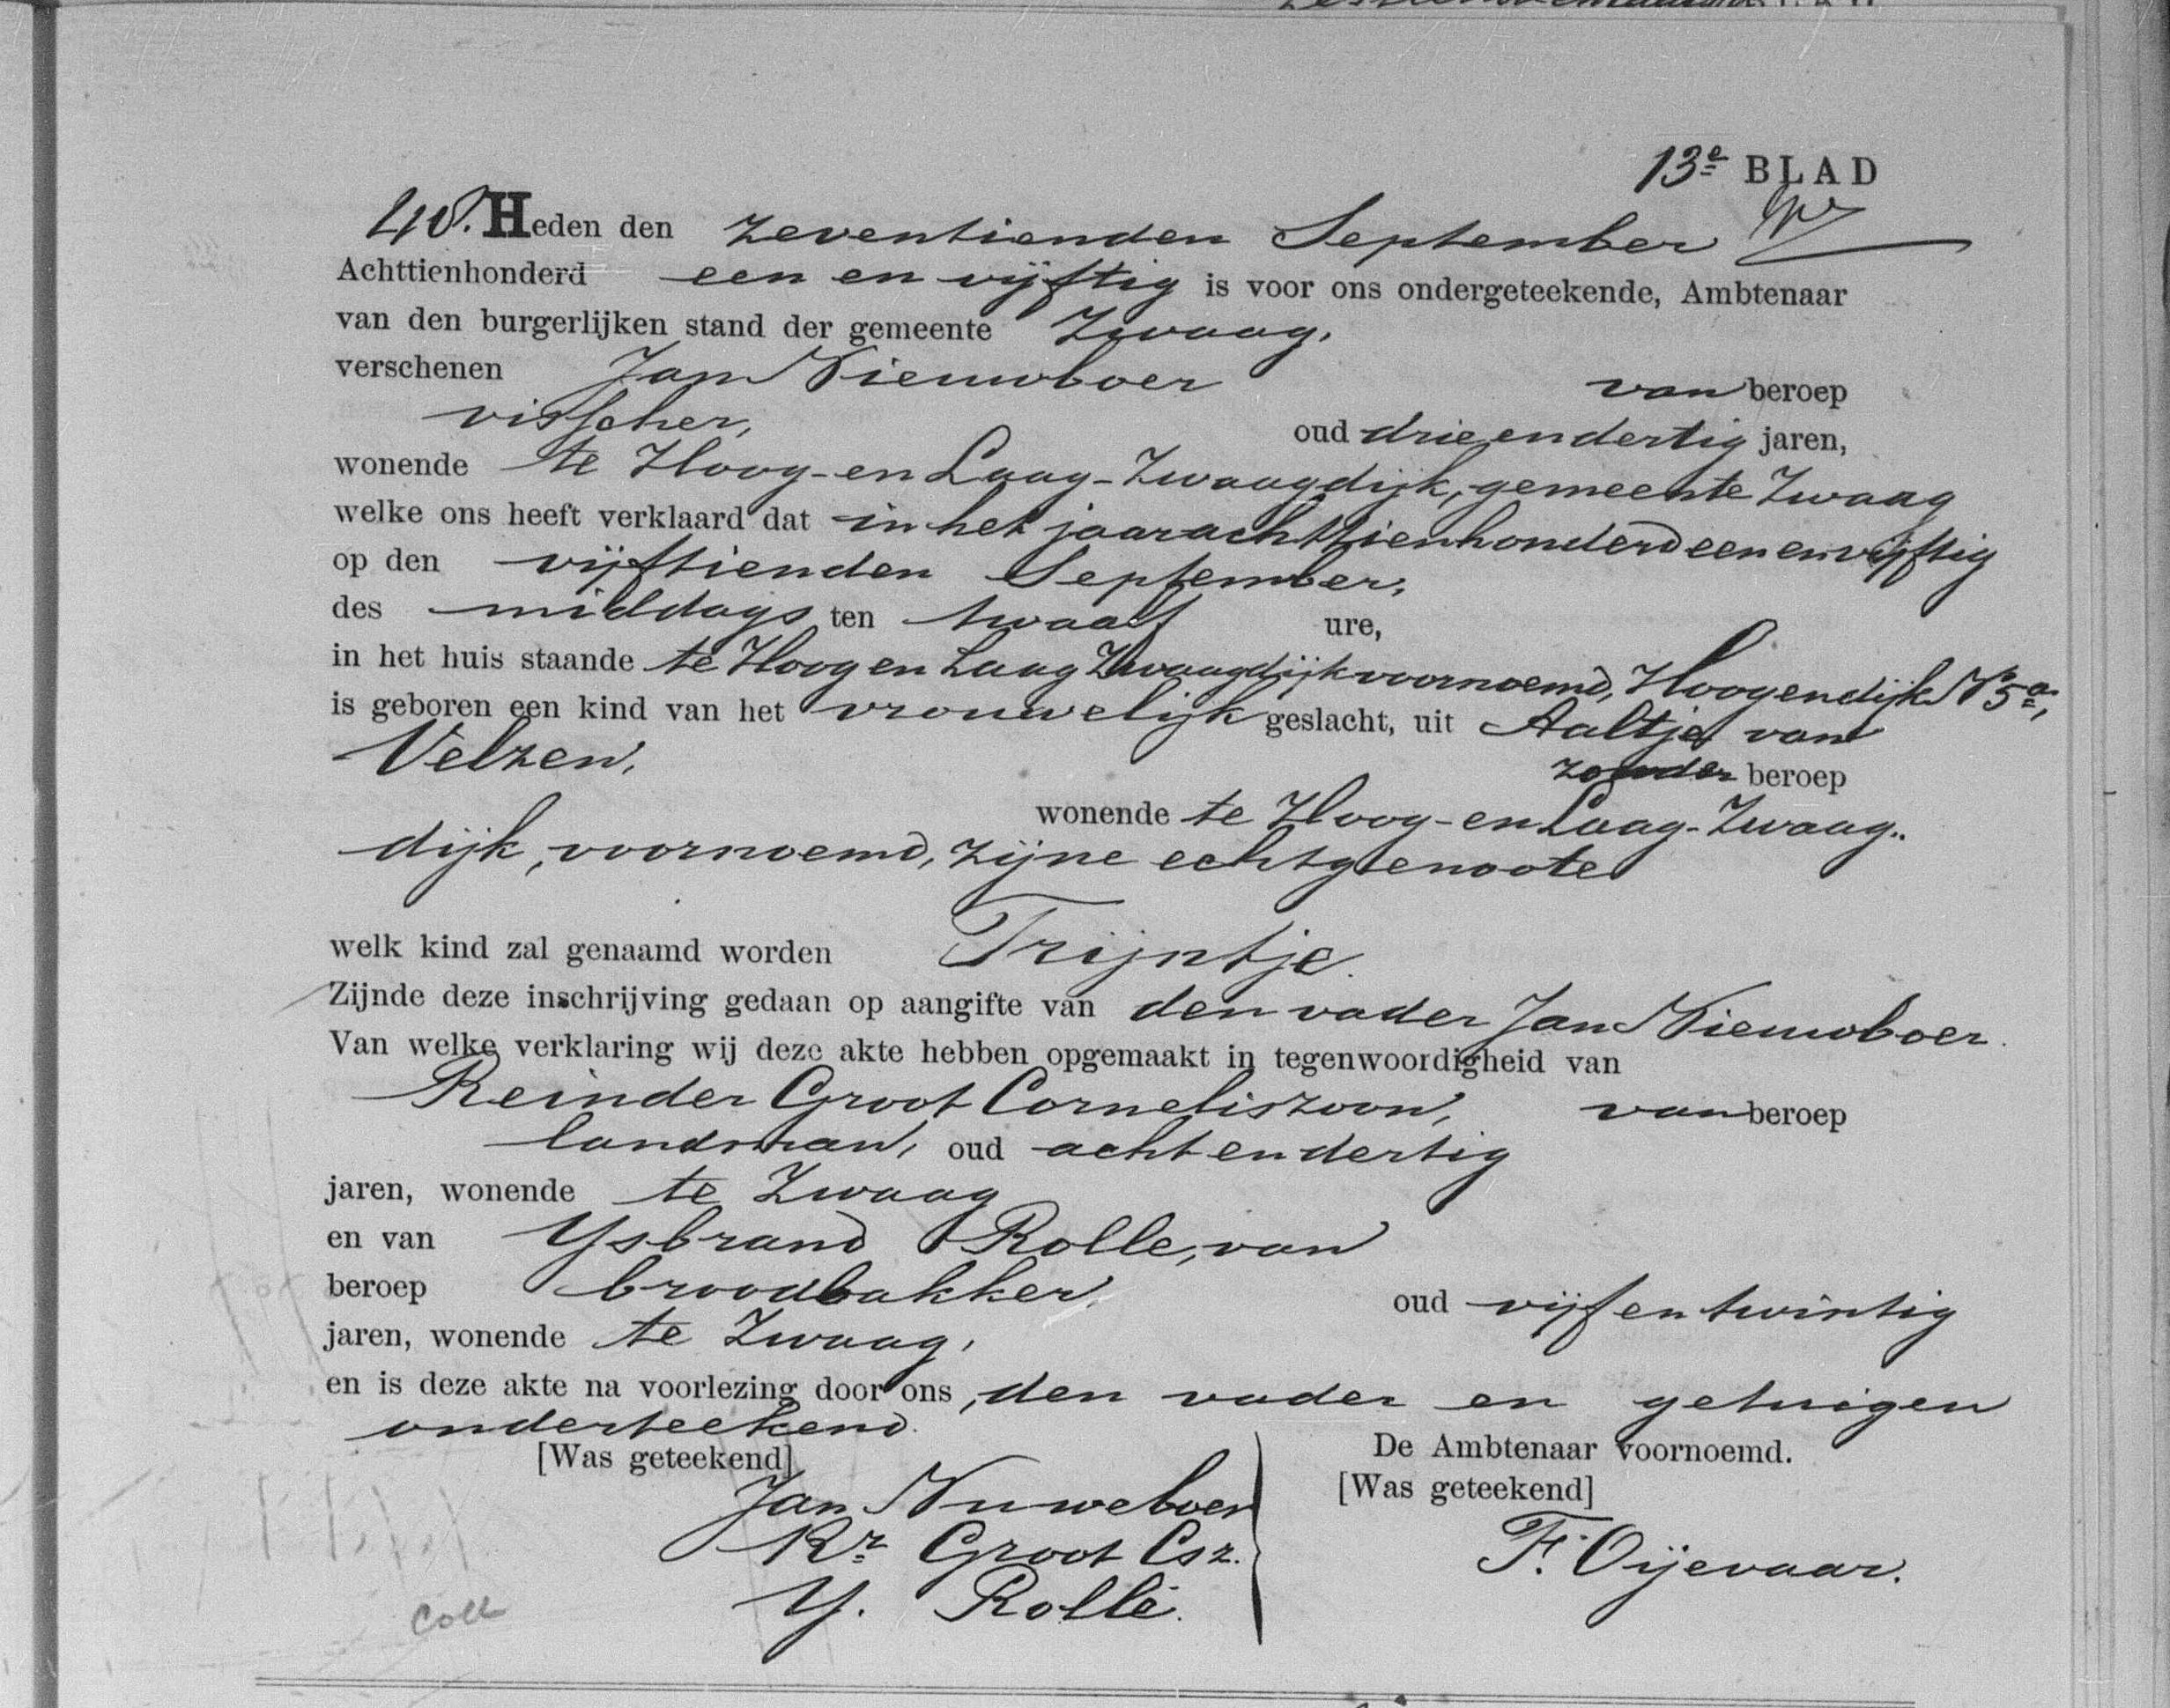 13e BLAD
40. Heden den zeventienden September
Achttienhonderd een en vijftig is voor ons ondergeteekende, Ambtenaar
van den burgerlijken stand der gemeente Zwaag,
verschenen Jan Nieuwboer van beroep
visscher, oud drie en dertig jaren,
wonende te Hoog- en Laag-Zwaagdijk, gemeente Zwaag
welke ons heeft verklaard dat in het jaar achttienhonderd een en vijftig
op den vijftienden September,
des middags ten twaalf ure,
in het huis staande te Hoog en Laag Zwaagdijk voornoemd, Hoogendijk No 5a,
is geboren een kind van het vrouwelijk geslacht, uit Aaltje van
Velzen, zonder beroep
wonende te Hoog-en Laag-Zwaag-
dijk, voornoemd, zijne echtgenoote
welk kind zal genaamd worden Trijntje.
Zijnde deze inschrijving gedaan op aangifte van den vader Jan Nieuwboer.
Van welke verklaring wij deze akte hebben opgemaakt in tegenwoordigheid van
Reinder Groot Corneliszoon, van beroep
landman, oud acht en dertig
jaren, wonende te Zwaag
en van Ysbrand Rolle, van
beroep broodbakker, oud vijf en twintig
jaren, wonende te Zwaag,
en is deze akte na voorlezing door ons, den vader en getuigen
onderteekend.
[Was geteekend] De Ambtenaar voornoemd.
Jan Nuweboer [Was geteekend]
Rr Groot Csz. F. Oijevaar.
Y. Rolle.
Coll